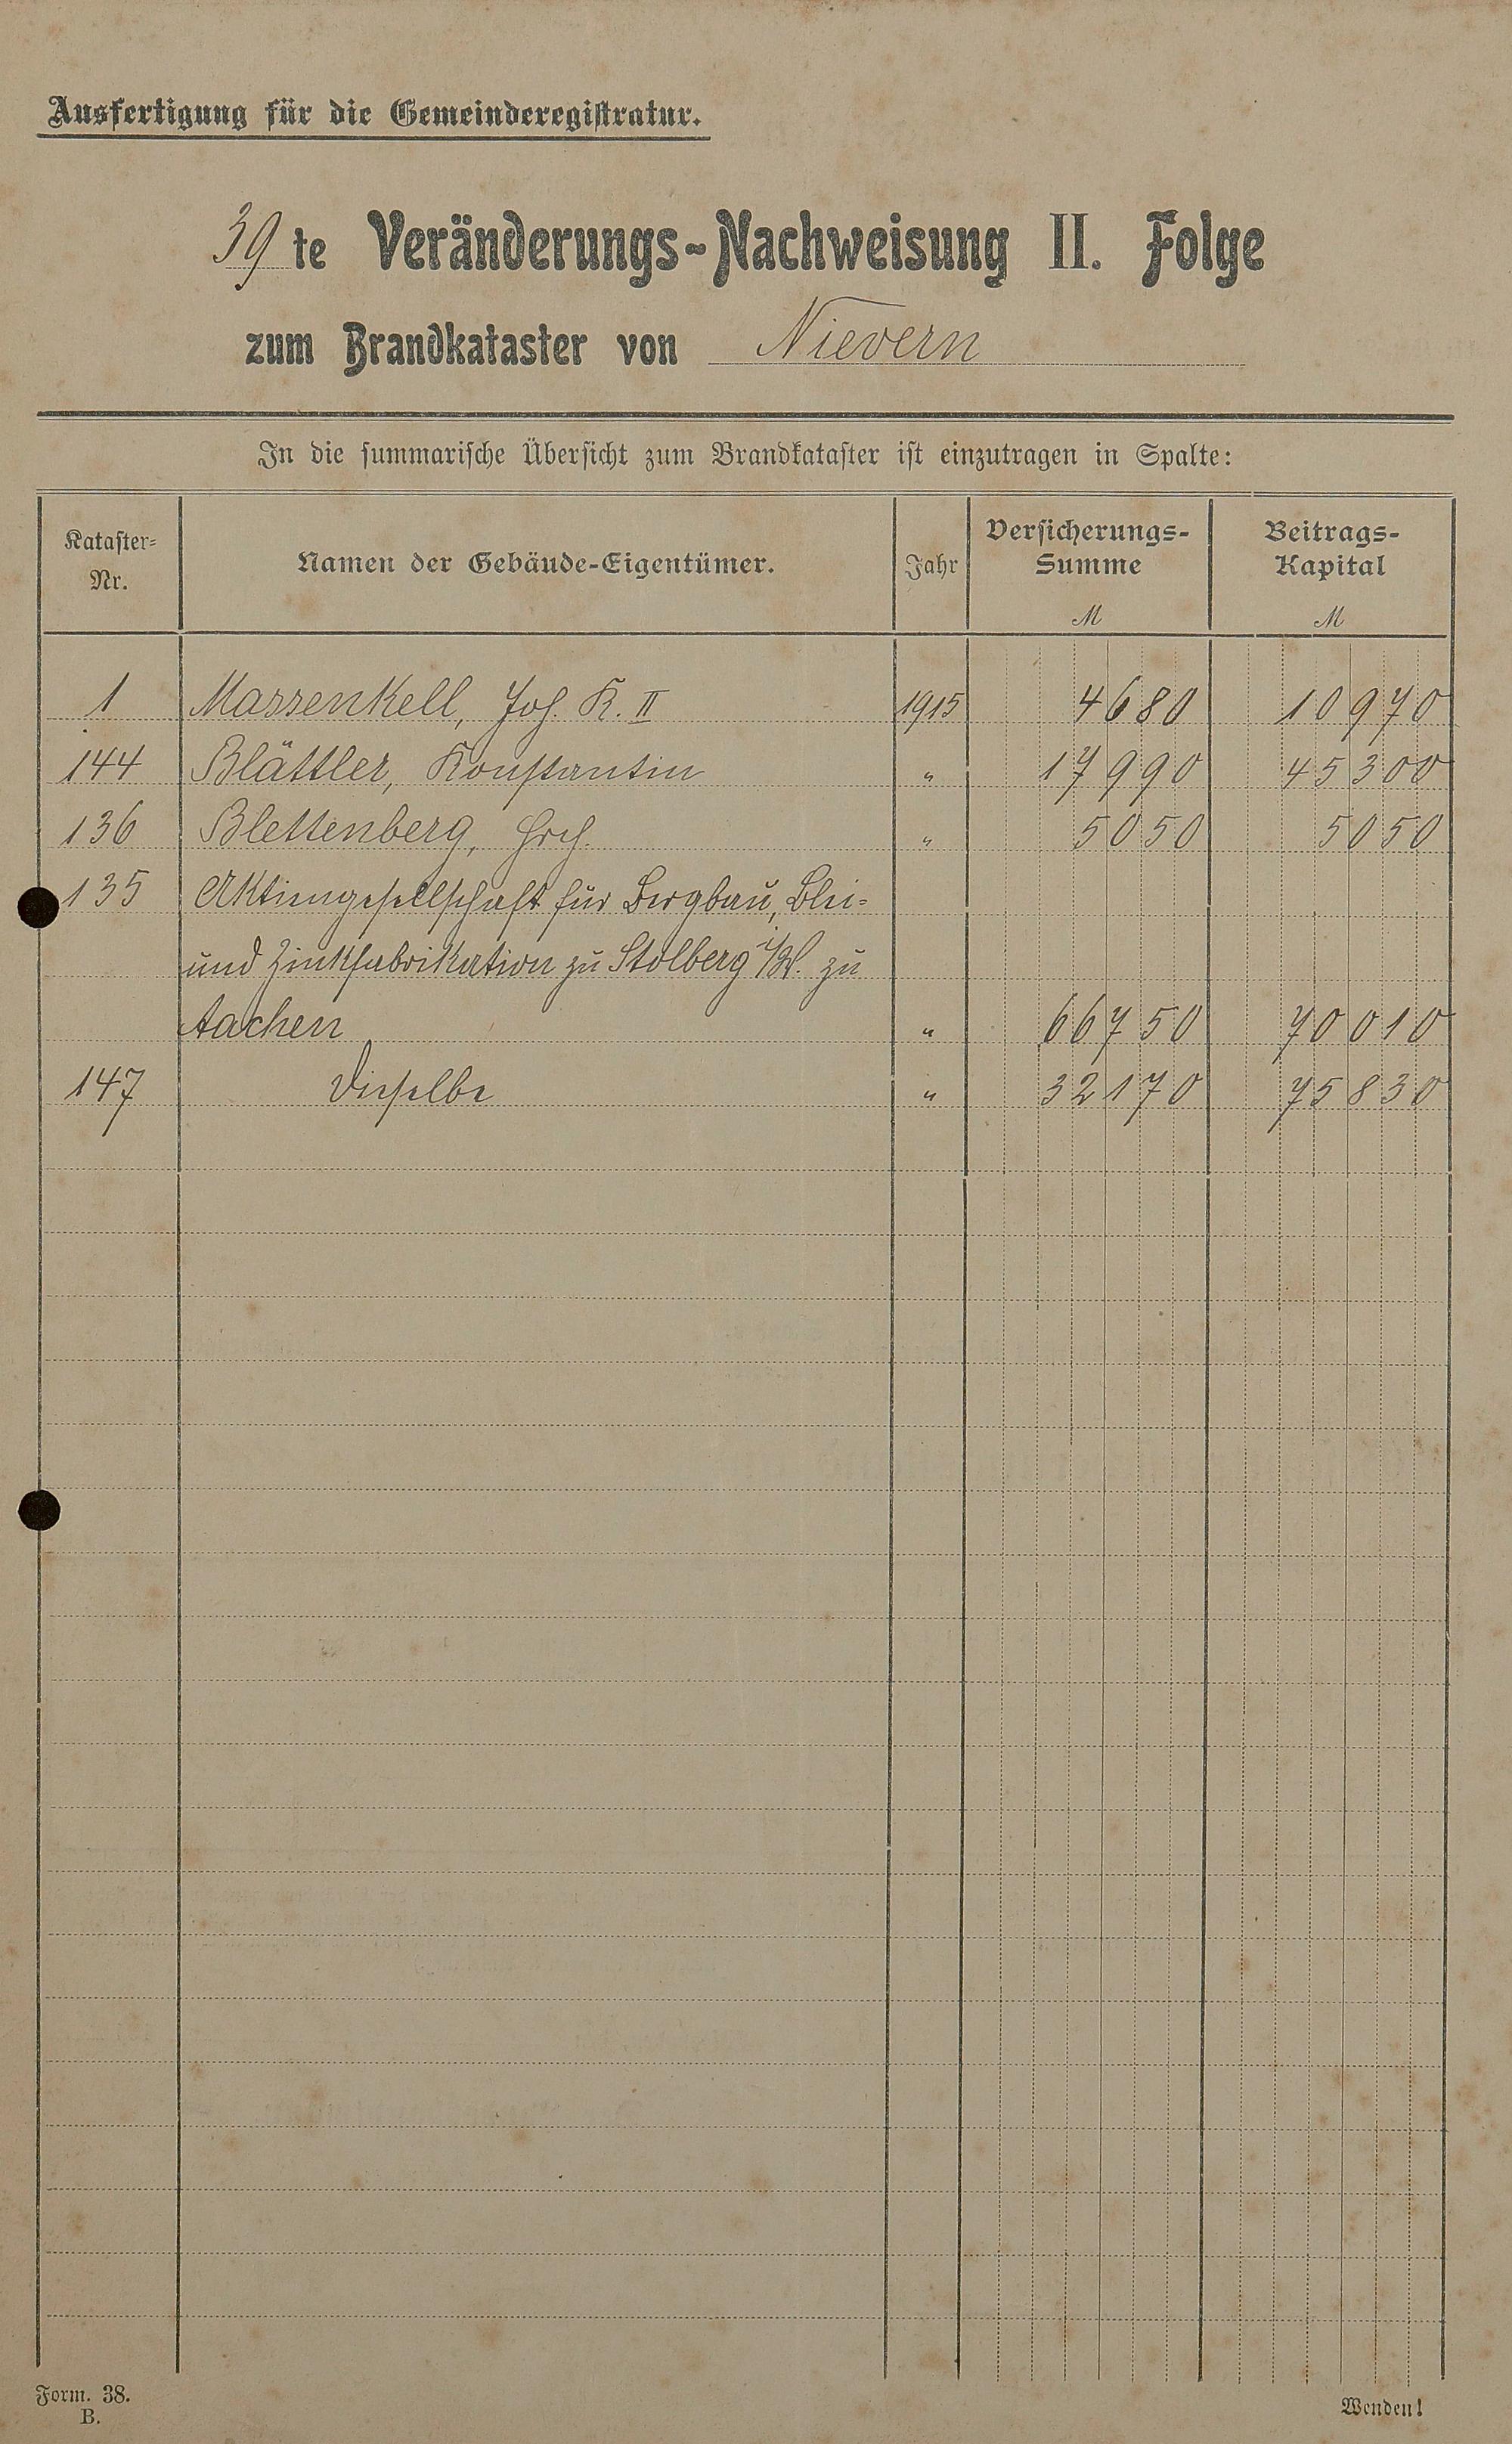 Ausfertigung für die Gemeinderegistratur.
39te Veränderungs-Nachweisung II. Folge
zum Brandkataster von Nievern
In die summarische Übersicht zum Brandkataster ist einzutragen in Spalte:
Kataster-Nr. Namen der Gebäude-Eigentümer. Jahr Versicherungs-Summe M Beitrags-Kapital M
1 Massenkell, Jos. K. II 1915 4680 10970
144 Blättler, Konstantin " 17990 45300
136 Blettenberg, Hrch. " 5050 5050
135 Aktiengesellschaft für Bergbau, Blei-
und Zinkfabrikation zu Stolberg i/W. zu
Aachen " 66750 70010
147 Dieselbe " 32170 75830
Form. 38.
B.
Wenden!